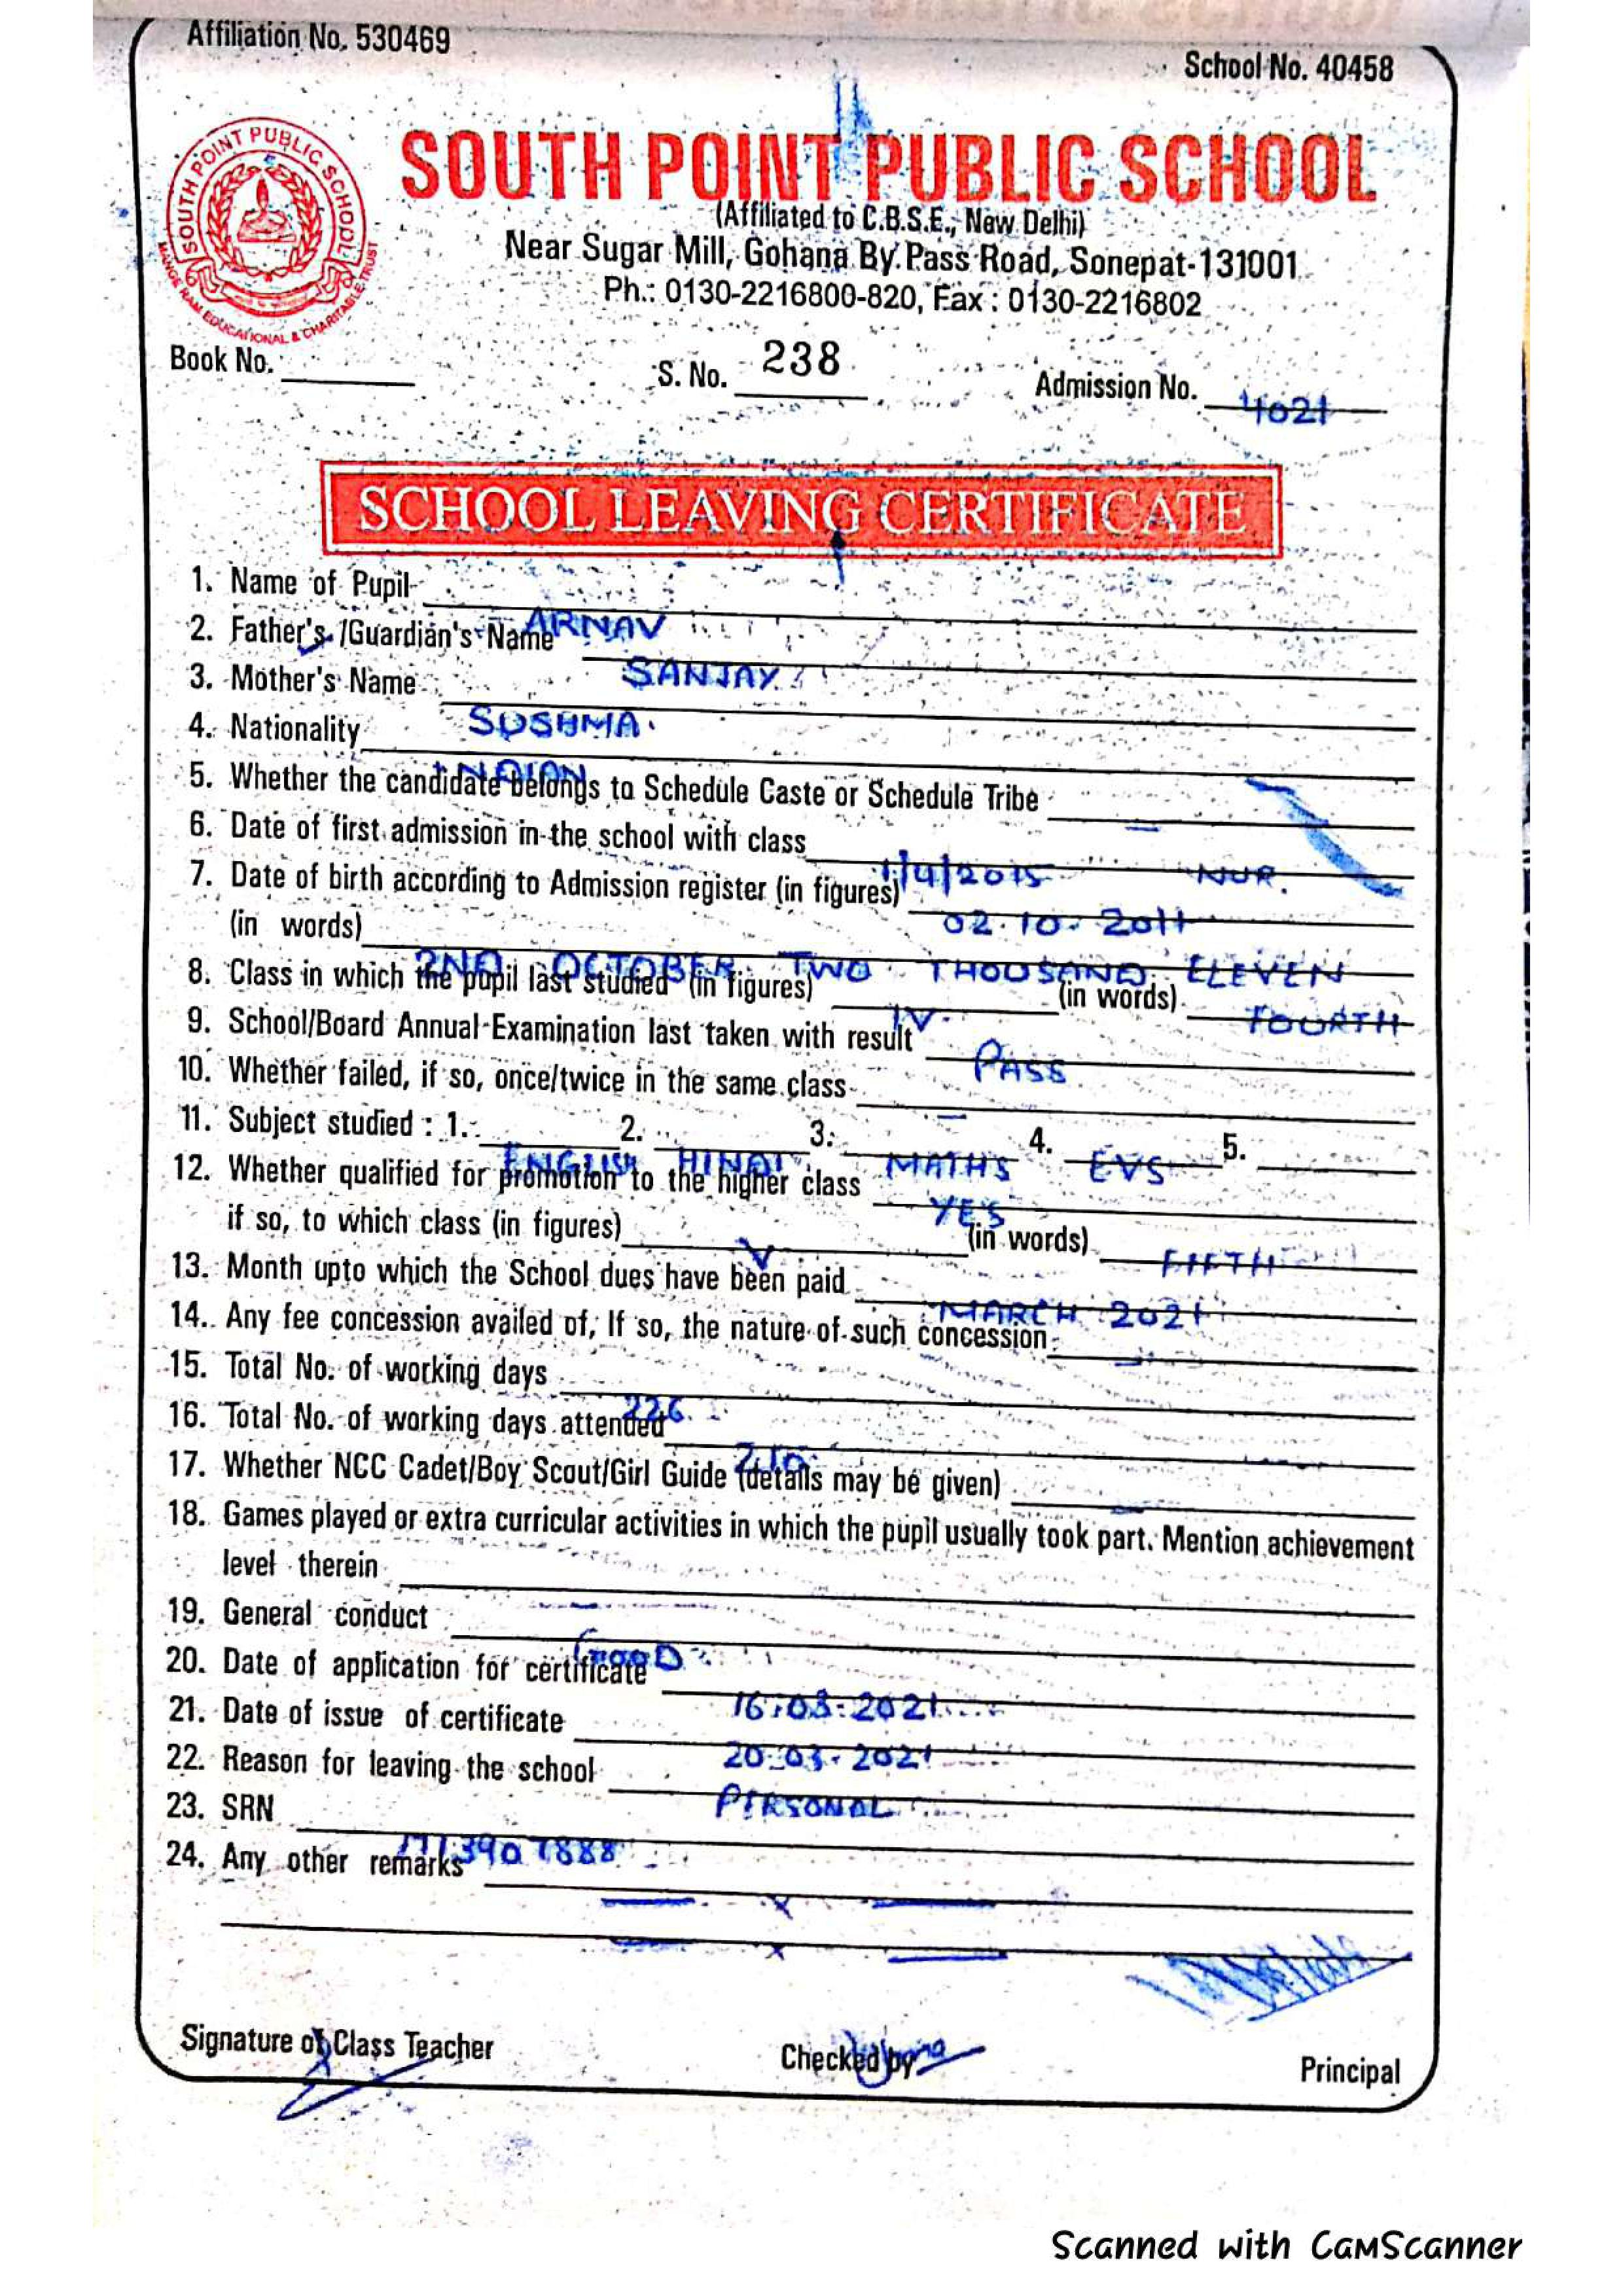 Affiliation No. 530469
School No. 40458
SOUTH POINT PUBLIC SCHOOL
MANGE RAM EDUCATIONAL & CHARITABLE TRUST
SOUTH POINT PUBLIC SCHOOL
(Affiliated to C.B.S.E., New Delhi)
Near Sugar Mill, Gohana By Pass Road, Sonepat-131001
Ph.: 0130-2216800-820, Fax : 0130-2216802
Book No. S. No. 238 Admission No. 4021
SCHOOL LEAVING CERTIFICATE
1. Name of Pupil ARNAV
2. Father's /Guardian's Name SANJAY
3. Mother's Name SUSHMA.
4. Nationality INDIAN
5. Whether the candidate belongs to Schedule Caste or Schedule Tribe —
6. Date of first admission in the school with class 1/4/2015 NUR.
7. Date of birth according to Admission register (in figures) 02.10.2011
(in words) 2ND OCTOBER TWO THOUSAND ELEVEN
8. Class in which the pupil last studied (in figures) IV. (in words) FOURTH
9. School/Board Annual Examination last taken with result PASS
10. Whether failed, if so, once/twice in the same class —
11. Subject studied : 1. ENGLISH 2. HINDI 3. MATHS 4. EVS 5.
12. Whether qualified for promotion to the higher class YES
if so, to which class (in figures) V (in words) FIFTH
13. Month upto which the School dues have been paid MARCH 2021
14. Any fee concession availed of, If so, the nature of such concession —
15. Total No. of working days 226
16. Total No. of working days attended
17. Whether NCC Cadet/Boy Scout/Girl Guide (details may be given) —
18. Games played or extra curricular activities in which the pupil usually took part. Mention achievement
level therein —
19. General conduct GOOD
20. Date of application for certificate 16.03.2021
21. Date of issue of certificate 20.03.2021
22. Reason for leaving the school PERSONAL
23. SRN
24. Any other remarks — x —
— x —
Signature of Class Teacher Checked by Principal
Scanned with CamScanner